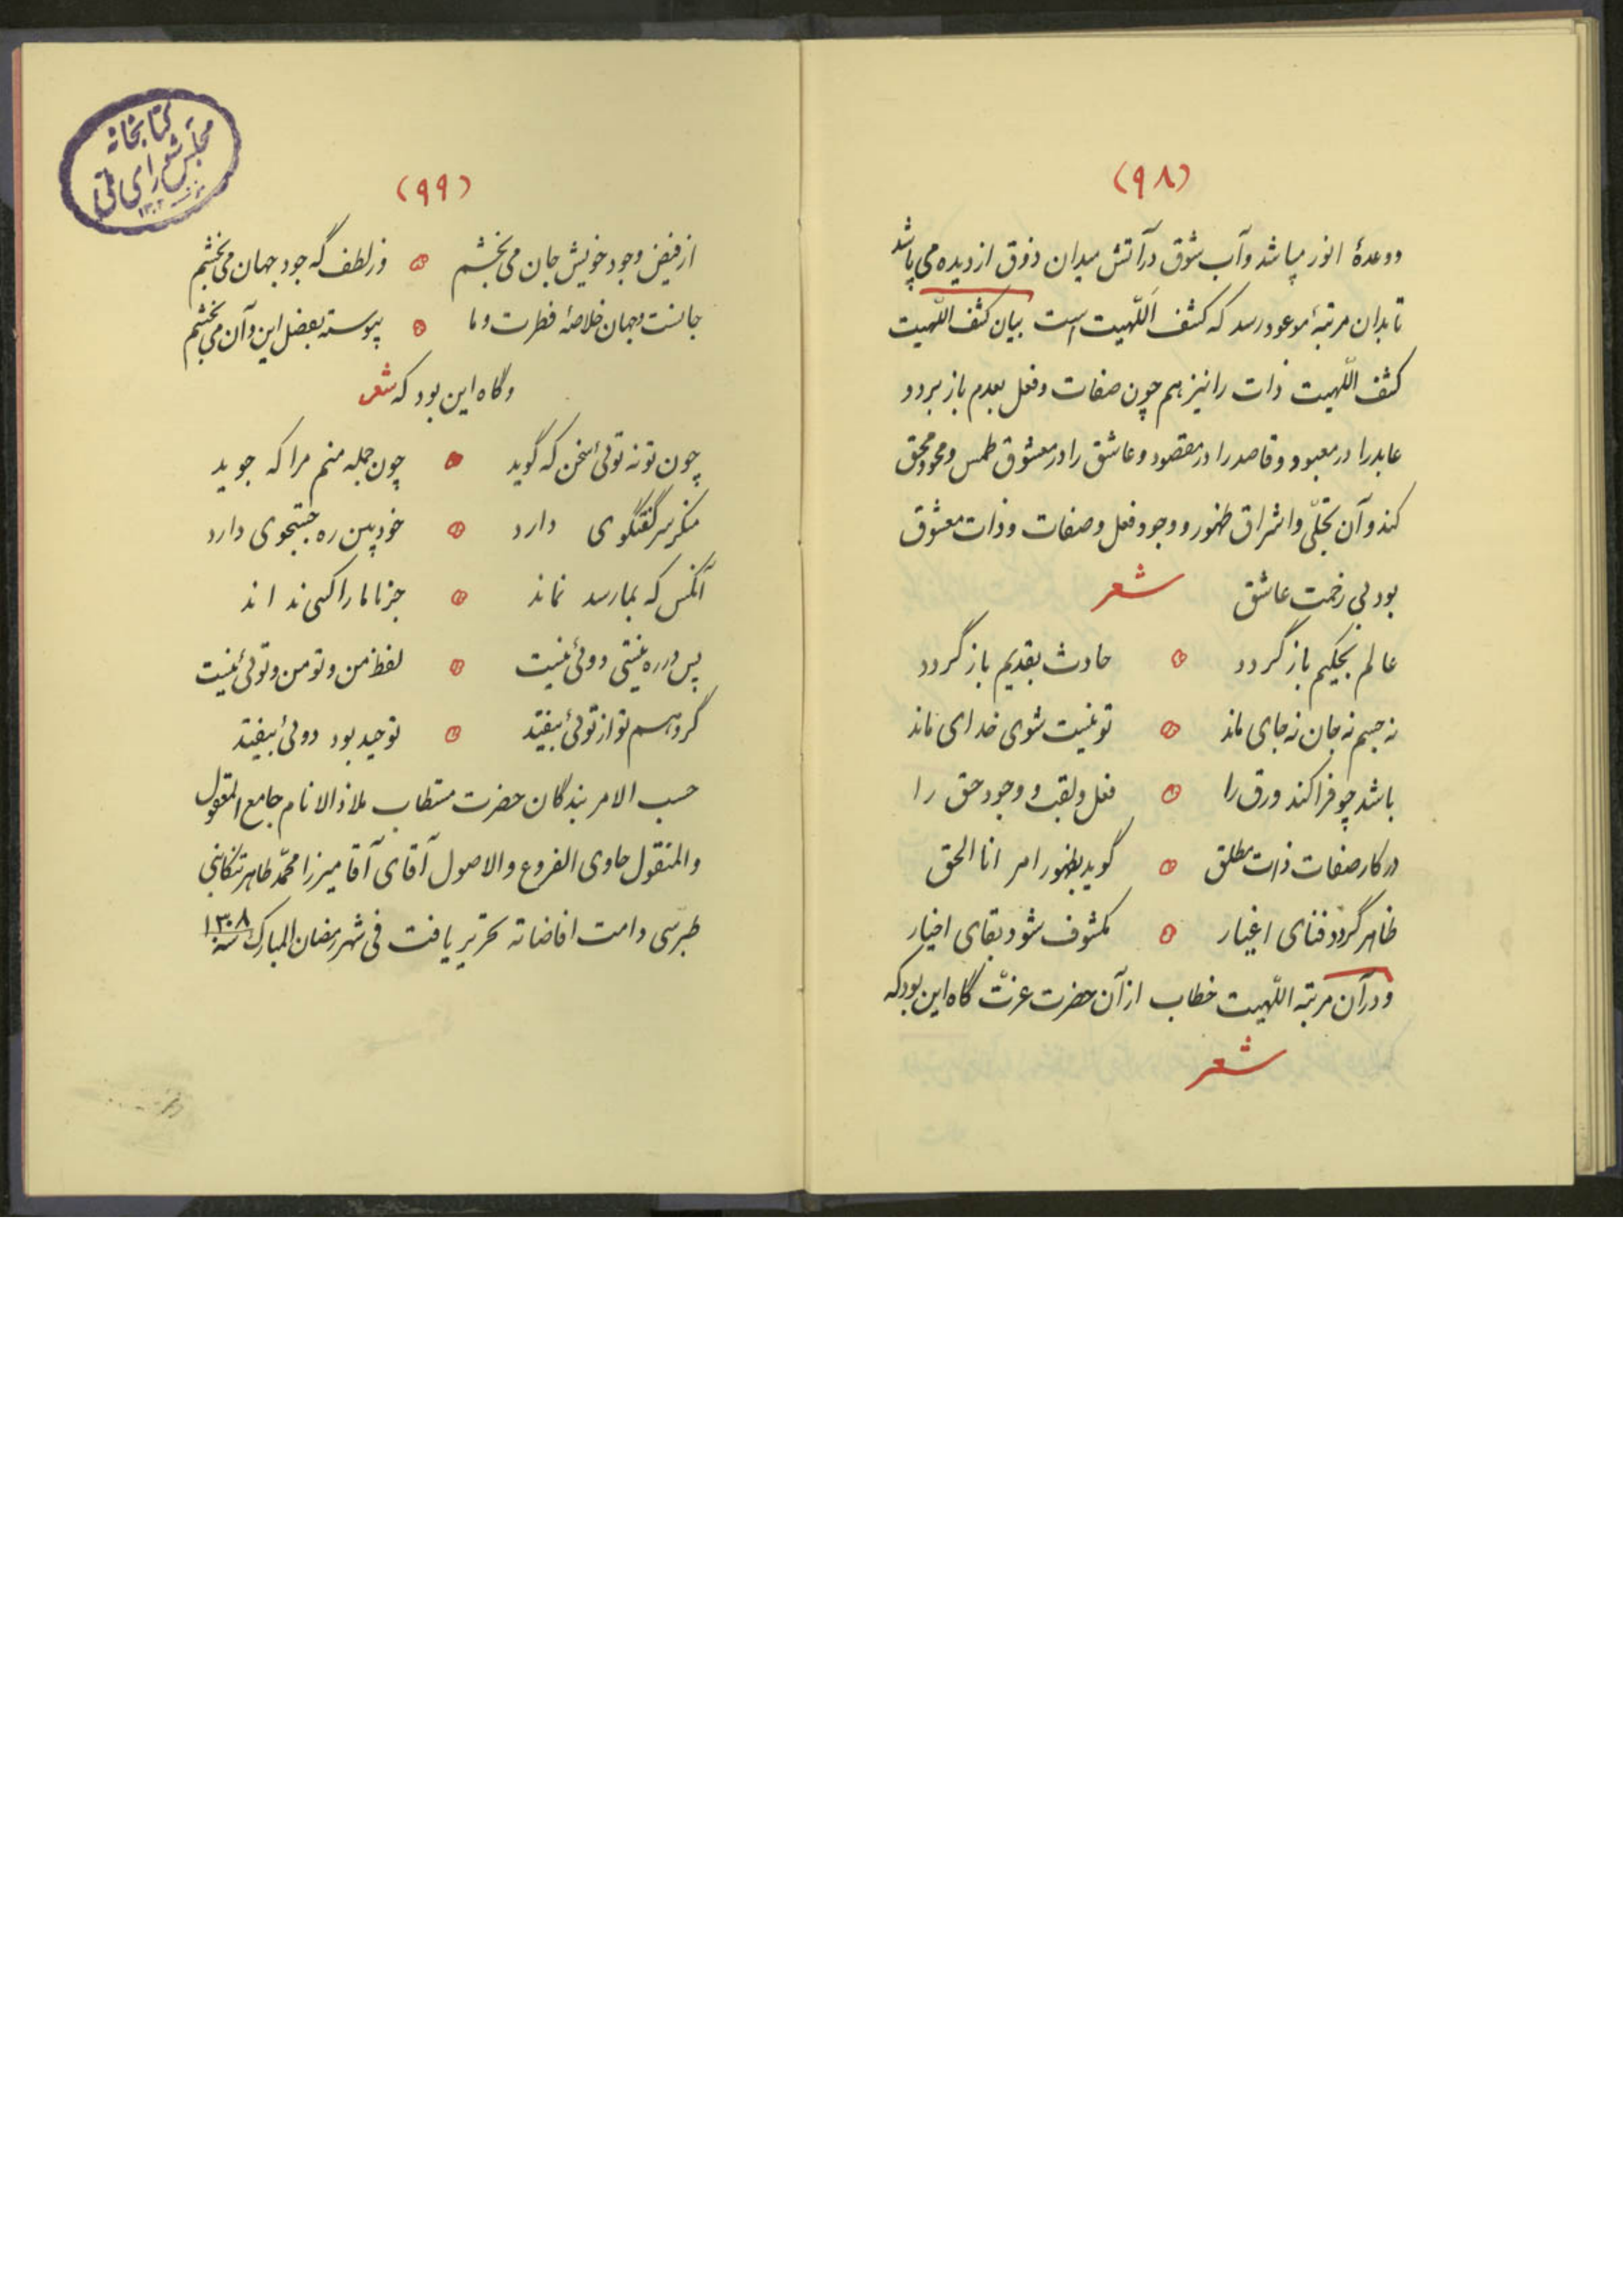 (۹۸)
ووعدهٔ انور میپاشد وآب شوق درآتش میدان ذوق ازدیده می پاشد
تابدان مرتبهٔ موعود رسد که کشف اللّهیت است بیان کشف اللّهیت
کشف اللّهیت ذات رانیز هم چون صفات وفعل بعدم باز برد و
عابدرا درمعبود وقاصدرا درمقصود وعاشق را درمعشوق طمس ومحو ومحق
کند وآن تجلّی واشراق ظهور ووجود فعل وصفات وذات معشوق
بود بی زخمت عاشق شعر
عالم بحکیم باز گردد حادث بقدیم باز گردد
نه جسم نه جان نه جای ماند تو نیست شوی خدای ماند
باشد چو فرا کند ورق را فعل ولقب و وجود حق را
در کار صفات ذات مطلق گوید بظهور امر انا الحق
ظاهر گردد فنای اغیار مکشوف شود بقای اخیار
ودرآن مرتبه اللّهیت خطاب ازآن حضرت عزّت گاه این بود که
شعر
کتابخانه
مجلس شورای ملی
(۹۹)
از فیض وجود خویش جان می بخشم وز لطف گه جود جهان می بخشم
جانست وجهان خلاصهٔ فطرت وما پیوسته بفضل این وآن می بخشم
وگاه این بود که شعر
چون تو نه توئی سخن که گوید چون جمله منم مرا که جوید
منکر سر گفتگوی دارد خودبین ره جستجوی دارد
آنکس که بما رسد نماند جز ما ما را کسی نداند
پس در ره نیستی دوئی نیست لفظ من وتو من وتوئی نیست
گر وهم تو از توئی بیفتد توحید بود دوئی بیفتد
حسب الامر بندگان حضرت مستطاب ملاذ الانام جامع المعقول
والمنقول حاوی الفروع والاصول آقای آقا میرزا محمّد طاهر تنکابنی
طبرسی دامت افاضاته تحریر یافت فی شهر رمضان المبارک سنه ۱۳۰۸